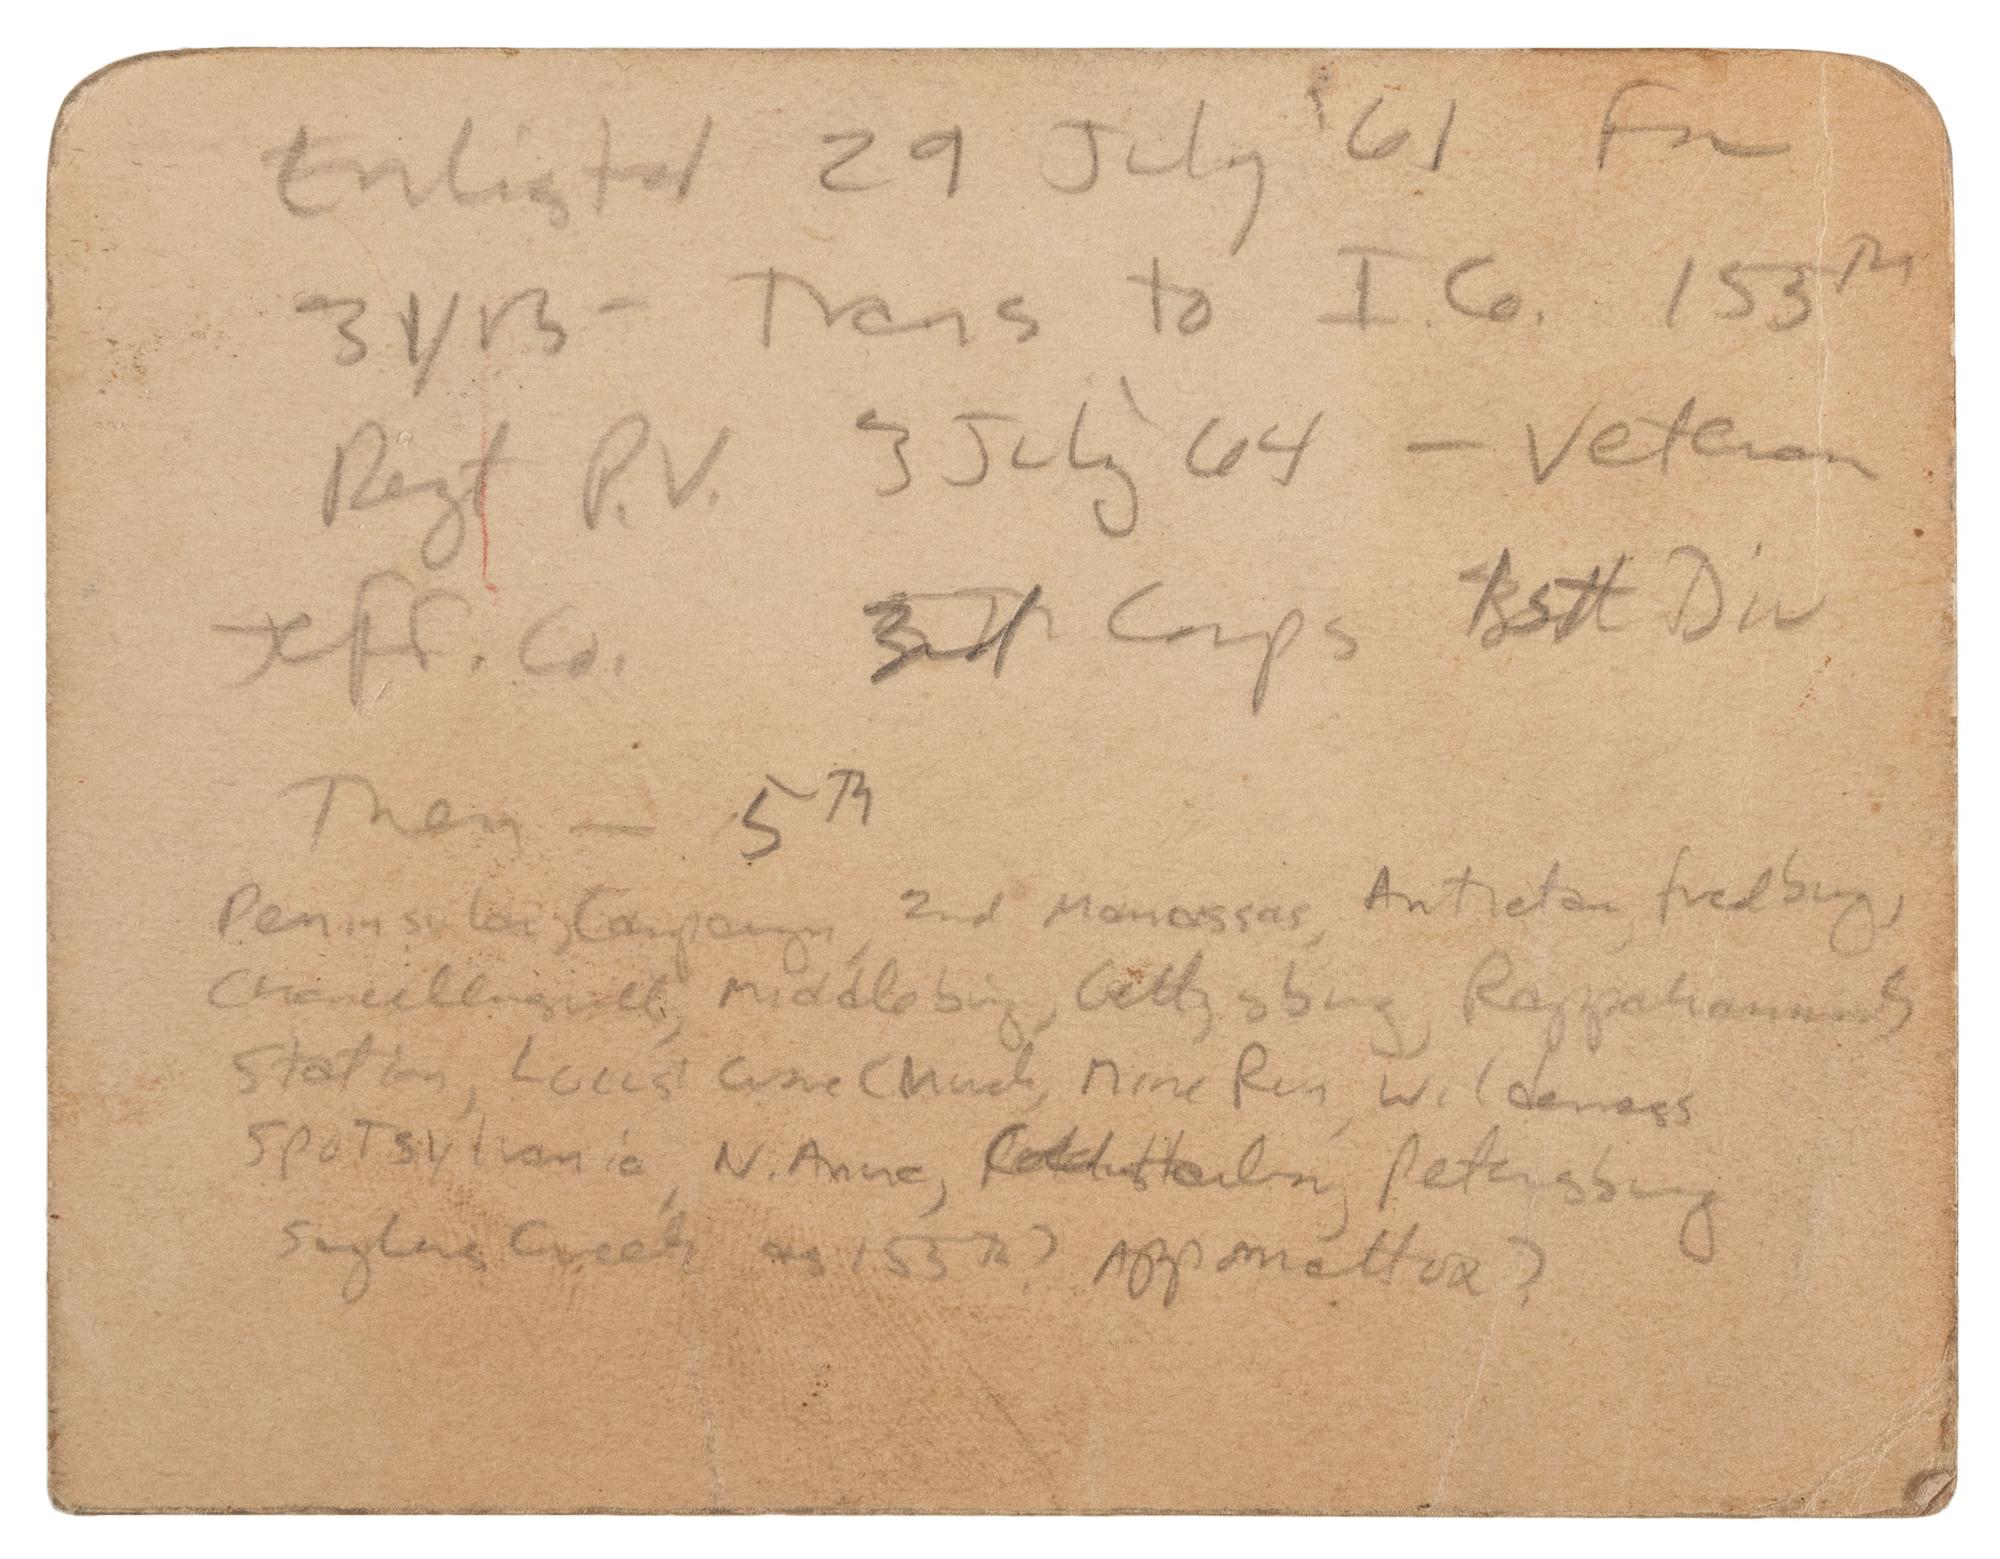 Enlisted 29 July '61 For
3 yrs - Trans to I. Co. 155TH
Regt P.V. 3 July 64 - Veteran
Jeff. Co. Corps Div
Them - 5TH
Peninsular Campaign, 2nd Manassas, Antietam, fredburg,
Chancellorsville, Middleburg, Gettysburg, Rappahannock
Station, Locust Grove Church, Mine Run, Wilderness
Spotsylvania, N. Anna, Petersburg
Saylors Creek as 155th? Appomattox?